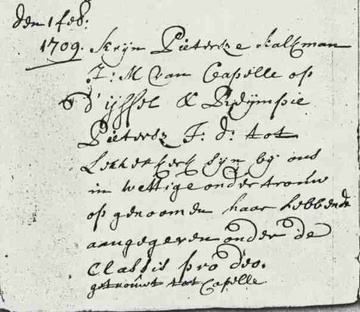 den 1 feb:
1709. Krijn Pietersze Kalkman
J: M van Capelle op
d'ijssel & Pietersz J: d: tot
Lekkerkerk syn bij ons
in wettige ondertrouw
op genoomen haar hebbende
aangegeven onder de
Classis pro deo.
getrouwt tot Capelle